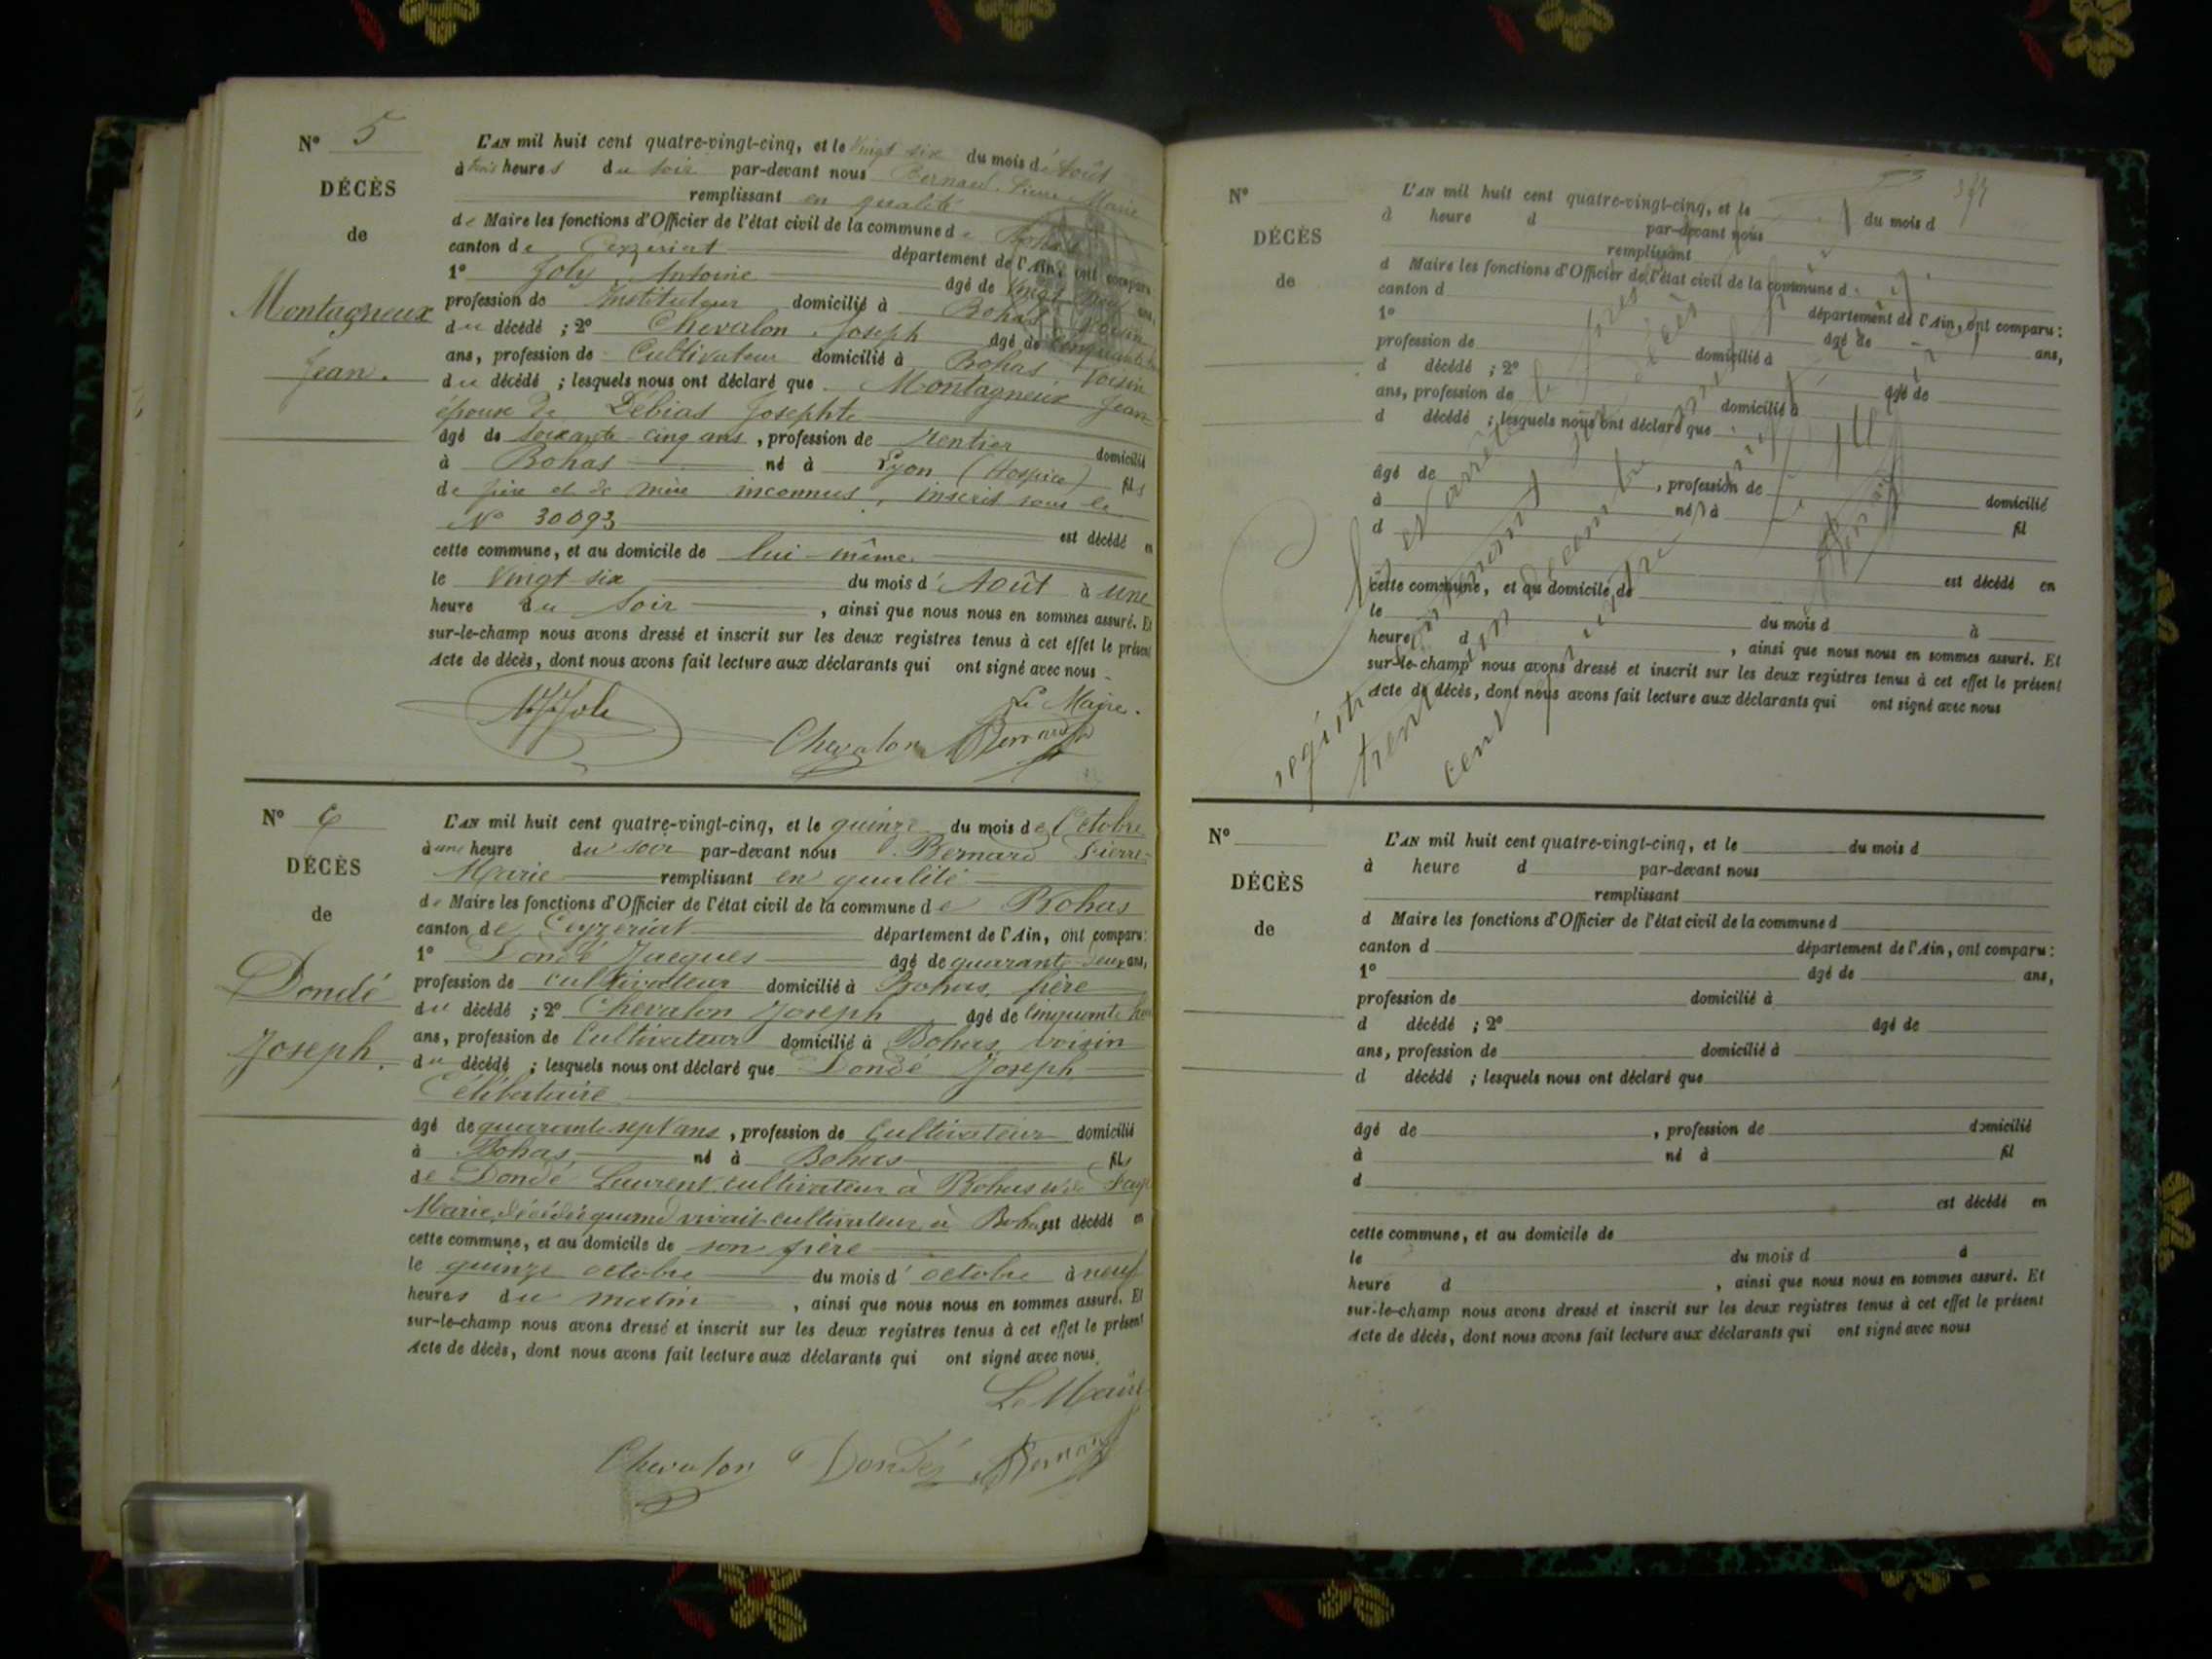 N° 5
DÉCÈS
de
Montagneux
Jean.
L'AN mil huit cent quatre-vingt-cinq, et le vingt six du mois d'Août
à trois heures du soir par-devant nous Bernard Pierre Marie
remplissant en qualité
de Maire les fonctions d'Officier de l'état civil de la commune de Bohas
canton de Ceyzériat département de l'Ain, ont comparu
1° Joly Antoine âgé de vingt
profession de Instituteur domicilié à Bohas voisin
du décédé ; 2° Chevalon Joseph âgé de cinquante
ans, profession de Cultivateur domicilié à Bohas voisin
du décédé ; lesquels nous ont déclaré que Montagneux Jean
époux de Débias Josephte
âgé de soixante-cinq ans, profession de Rentier domicilié
à Bohas né à Lyon (Hospice) fils
de père et de mère inconnus, inscrit sous le
N° 30093 est décédé en
cette commune, et au domicile de lui-même.
le Vingt six du mois d'Août à une
heure du soir, ainsi que nous nous en sommes assuré. Et
sur-le-champ nous avons dressé et inscrit sur les deux registres tenus à cet effet le présent
Acte de décès, dont nous avons fait lecture aux déclarants qui ont signé avec nous
Le Maire.
Joly Chevalon Bernard
N° 6
DÉCÈS
de
Dondé
Joseph.
L'AN mil huit cent quatre-vingt-cinq, et le quinze du mois de Octobre
à une heure du soir par-devant nous Bernard Pierre-
Marie remplissant en qualité
de Maire les fonctions d'Officier de l'état civil de la commune de Bohas
canton de Ceyzériat département de l'Ain, ont comparu :
1° Dondé Jacques âgé de quarante-deux ans,
profession de cultivateur domicilié à Bohas, frère
du décédé ; 2° Chevalon Joseph âgé de cinquante
ans, profession de Cultivateur domicilié à Bohas, voisin
du décédé ; lesquels nous ont déclaré que Dondé Joseph
Célibataire
âgé de quarante sept ans, profession de Cultivateur domicilié
à Bohas né à Bohas fils
de Dondé Laurent, cultivateur à Bohas
Marie, décédée quand vivait cultivateur à Bohas est décédé en
cette commune, et au domicile de son frère
le quinze octobre du mois d'octobre à neuf
heures du matin, ainsi que nous nous en sommes assuré. Et
sur-le-champ nous avons dressé et inscrit sur les deux registres tenus à cet effet le présent
Acte de décès, dont nous avons fait lecture aux déclarants qui ont signé avec nous.
Le Maire
Chevalon Dondé Bernard
N°
DÉCÈS
de
L'AN mil huit cent quatre-vingt-cinq, et le du mois d
à heure d par-devant nous
remplissant
d Maire les fonctions d'Officier de l'état civil de la commune d
canton d département de l'Ain, ont comparu :
1° âgé de ans,
profession de domicilié à
d décédé ; 2° âgé de
ans, profession de domicilié à
d décédé ; lesquels nous ont déclaré que
âgé de , profession de domicilié
à né à fil
d
est décédé en
cette commune, et au domicile de
le du mois d à
heure d , ainsi que nous nous en sommes assuré. Et
sur-le-champ nous avons dressé et inscrit sur les deux registres tenus à cet effet le présent
Acte de décès, dont nous avons fait lecture aux déclarants qui ont signé avec nous
Clos et arrêté le
registre décès
trente un décembre
cent
N°
DÉCÈS
de
L'AN mil huit cent quatre-vingt-cinq, et le du mois d
à heure d par-devant nous
remplissant
d Maire les fonctions d'Officier de l'état civil de la commune d
canton d département de l'Ain, ont comparu :
1° âgé de ans,
profession de domicilié à
d décédé ; 2° âgé de
ans, profession de domicilié à
d décédé ; lesquels nous ont déclaré que
âgé de , profession de domicilié
à né à fil
d
est décédé en
cette commune, et au domicile de
le du mois d à
heure d , ainsi que nous nous en sommes assuré. Et
sur-le-champ nous avons dressé et inscrit sur les deux registres tenus à cet effet le présent
Acte de décès, dont nous avons fait lecture aux déclarants qui ont signé avec nous